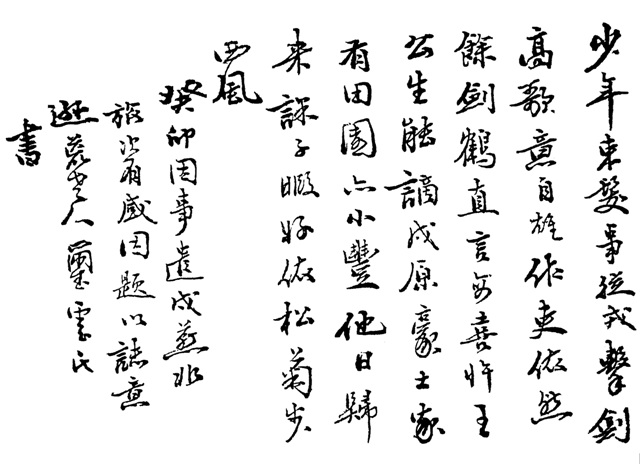 少年束髮事從戎擊劍
高歌意自雄作吏依然
餘劍鶴直言每喜忤王
公生能謫戍原豪士家
有田園亦小豐他日歸
來課子暇好依松菊步
西風
癸卯因事遣戍燕北
旅次有感因題以誌意
老人氏
書